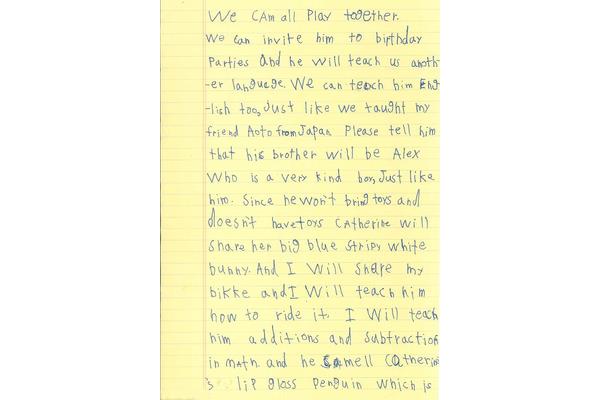 We CAm all Play together.
We can invite him to birthday
Parties and he will teach us anoth-
-er language. We can teach him Eng
-lish too, Just like we taught my
friend Aoto from Japan Please tell him
that his brother will be Alex
Who is a very kind boy, Just like
him. Since he won't bring toys and
doesn't have toys Catherine will
share her big blue stripy white
bunny. And I Will share my
bikke and I Will teach him
how to ride it. I Will teach
him additions and subtraction
in math. and he Smell Catherine
's lip gloss Penguin which is